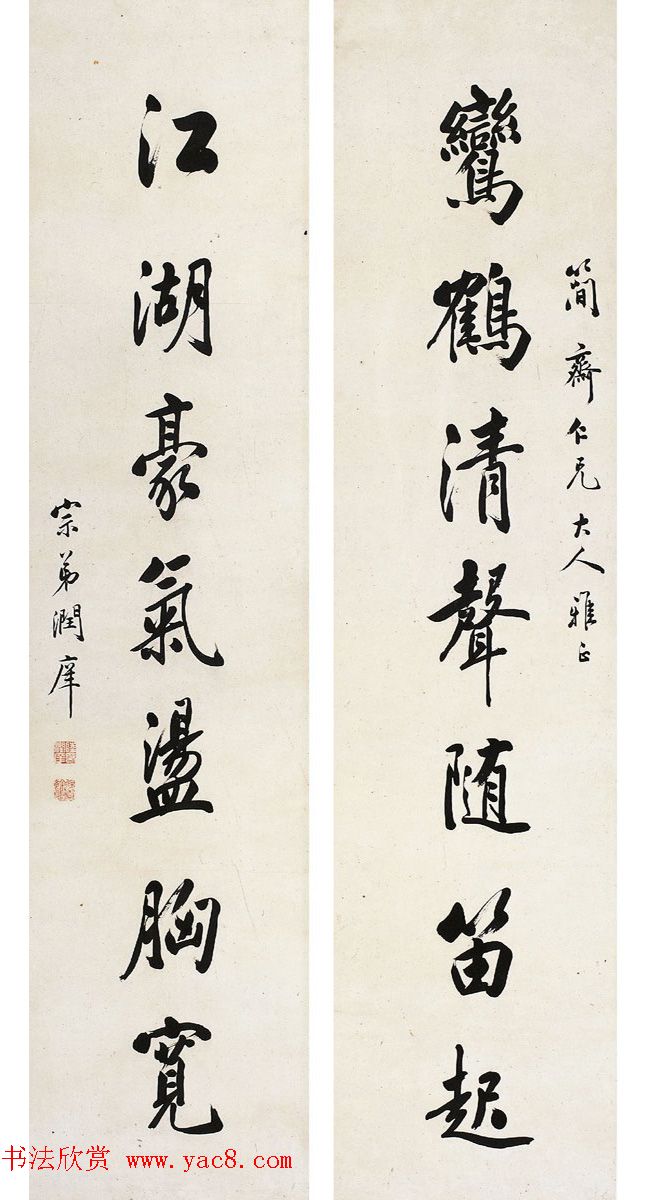 簡齋仁兄大人雅正
鸞鶴清聲随笛起
江湖豪氣盪胸寬
宗弟潤庠
书法欣赏 www.yac8.com